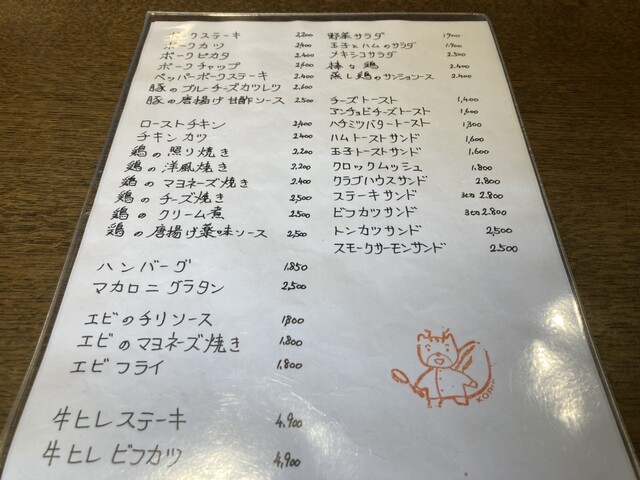 ポークステーキ 2,200
ポークカツ 2,400
ポークピカタ 2,400
ポークチャップ 2,600
ペッパーポークステーキ 2,400
豚のブルーチーズカツレツ 2,600
豚の唐揚げ甘酢ソース 2,500
ローストチキン 2,400
チキンカツ 2,400
鶏の照り焼き 2,200
鶏の洋風焼き 2,200
鶏のマヨネーズ焼き 2,400
鶏のチーズ焼き 2,500
鶏のクリーム煮 2,500
鶏の唐揚げ薬味ソース 2,500
ハンバーグ 1,850
マカロニグラタン 2,500
エビのチリソース 1,800
エビのマヨネーズ焼き 1,800
エビフライ 1,800
牛ヒレステーキ 4,900
牛ヒレビフカツ 4,900
野菜サラダ 1,900
玉子とハムのサラダ 1,900
メキシコサラダ 2,400
棒々鶏 2,400
蒸し鶏のサンショソース 2,400
チーズトースト 1,400
アンチョビチーズトースト 1,600
ハチミツバタートースト 1,300
ハムトーストサンド 1,600
玉子トーストサンド 1,600
クロックムッシュ 1,800
クラブハウスサンド 2,800
ステーキサンド 3切 2,800
ビフカツサンド 3切 2,800
トンカツサンド 2,500
スモークサーモンサンド 2,500